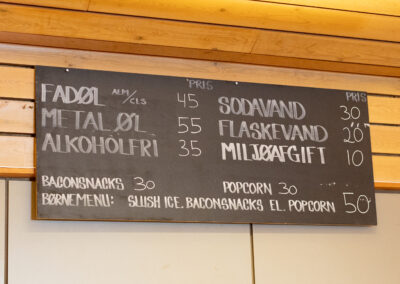 PRIS
FADØL 45
METAL ØL 55
ALKOHOLFRI 35
PRIS
SODAVAND 30
FLASKEVAND 20
MILJØAFGIFT 10
BACONSNACKS 30
POPCORN 30
BØRNEMENU: SLUSH ICE, BACONSNACKS EL. POPCORN 50